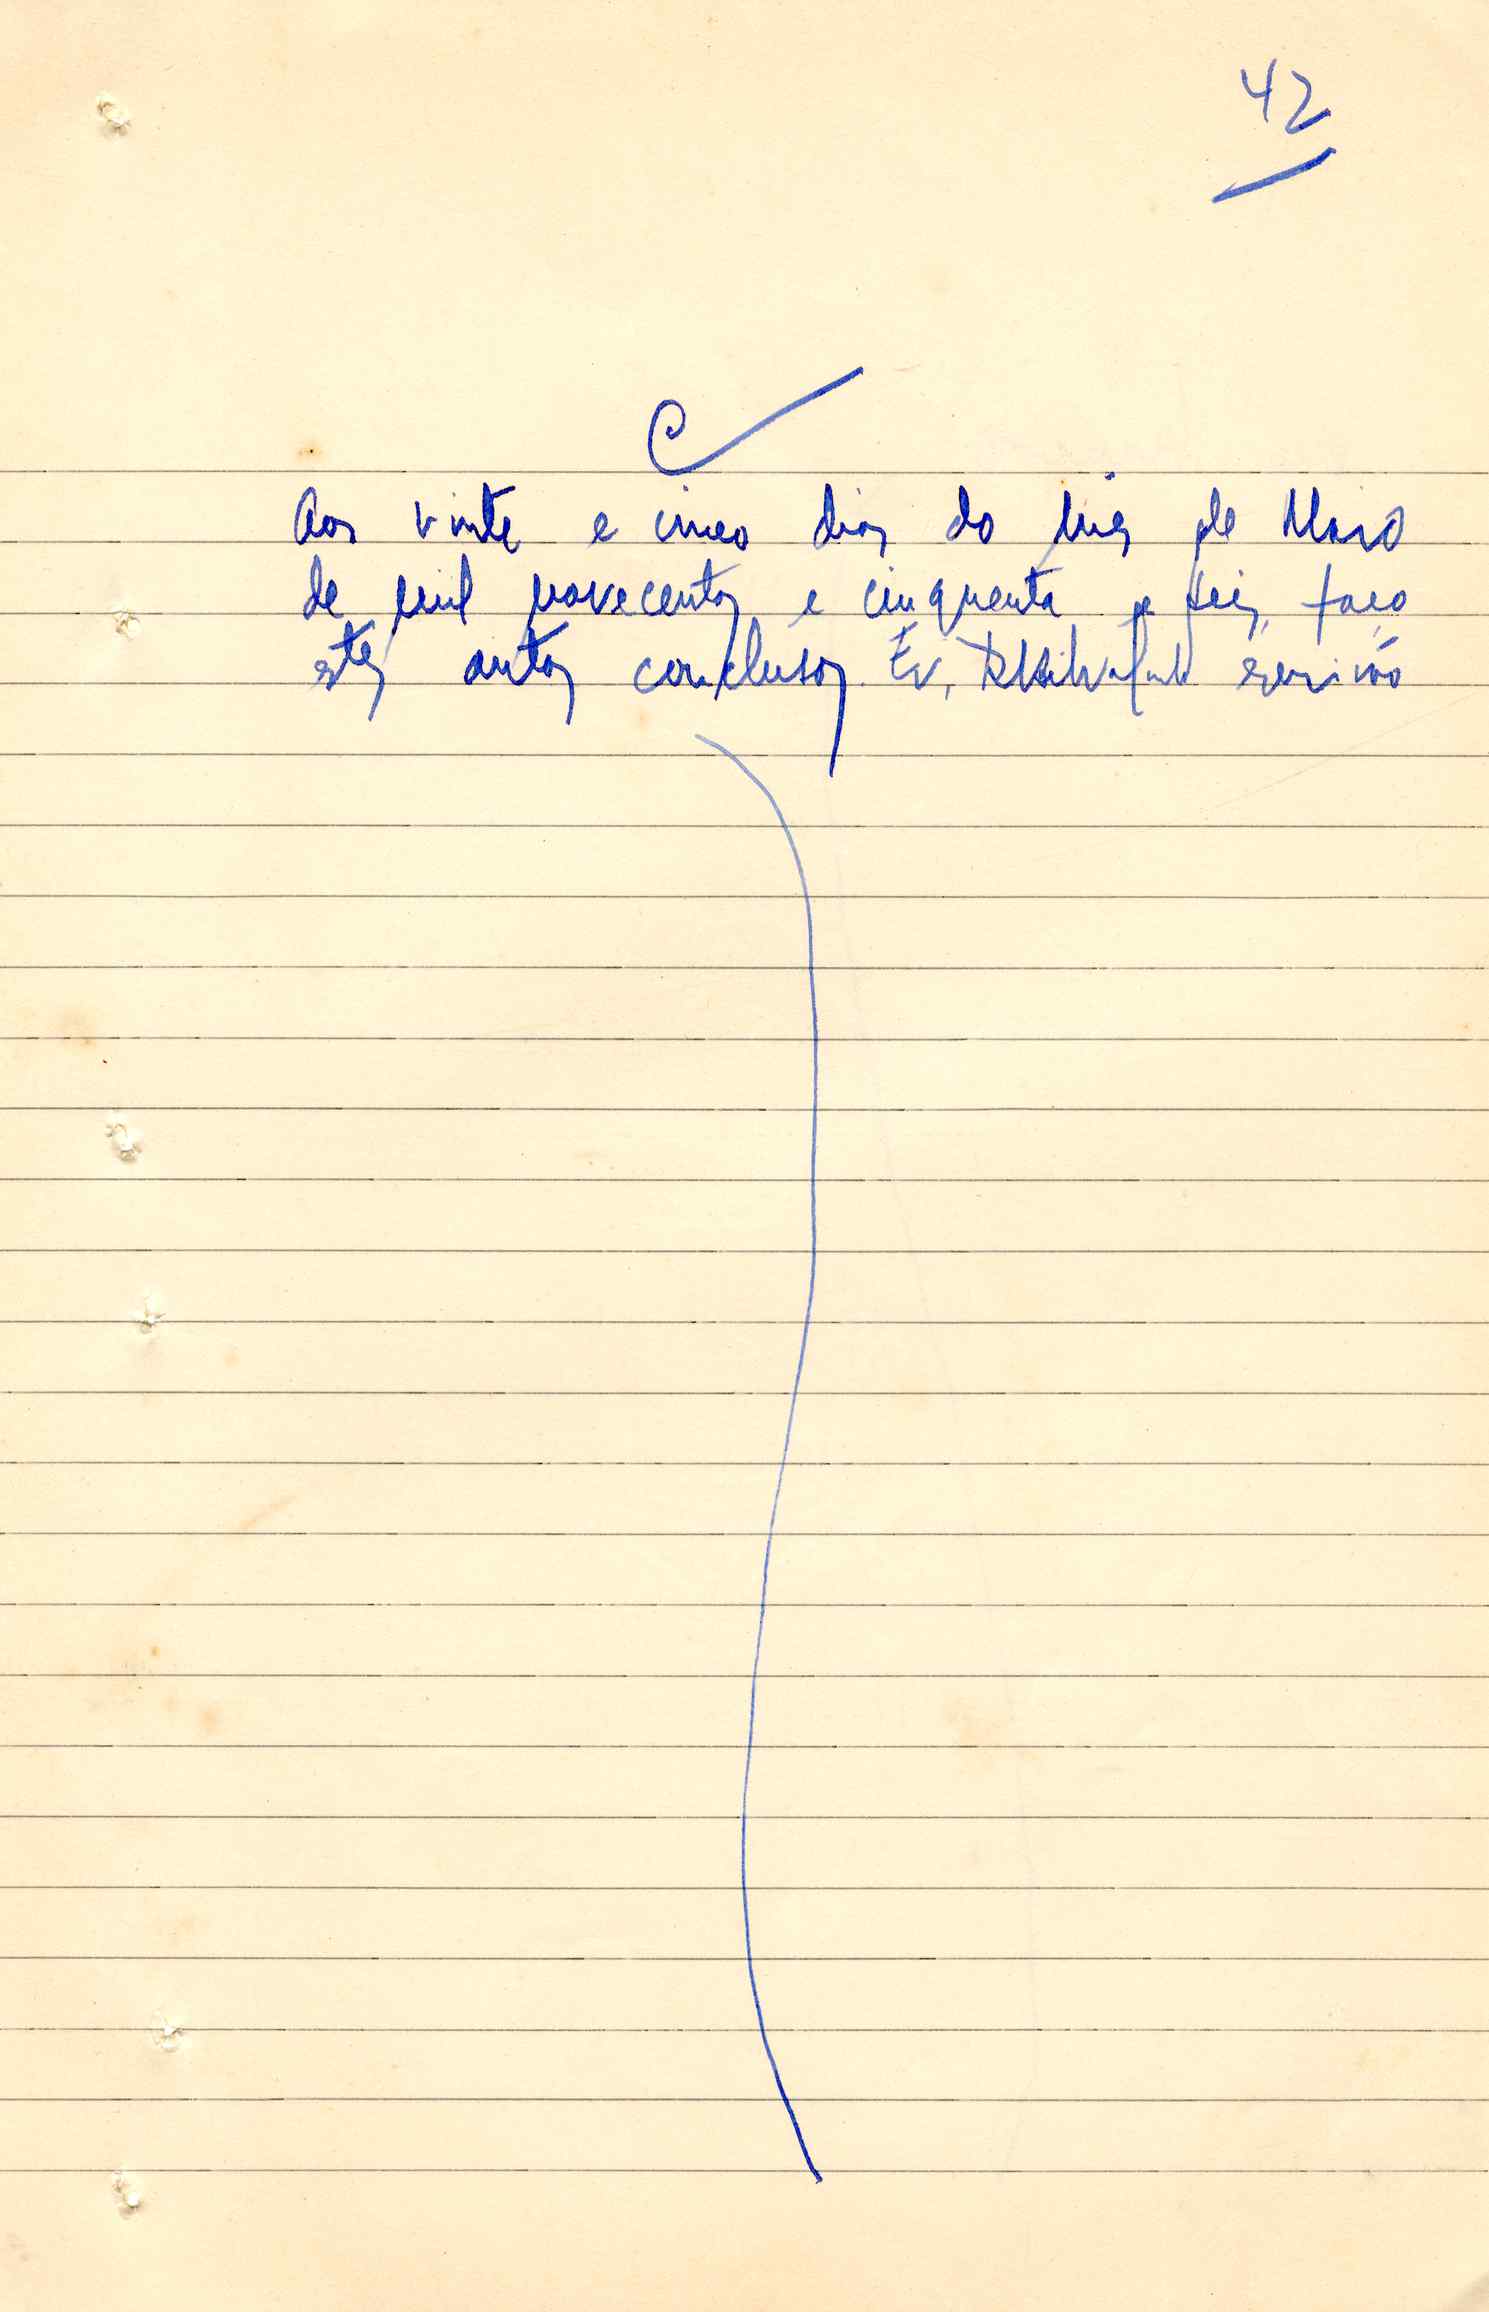 42
C
Aos vinte e cinco dias do mês de Maio
de mil novecentos e cinquenta e seis, faço
estes autos conclusos. Eu, escrivão